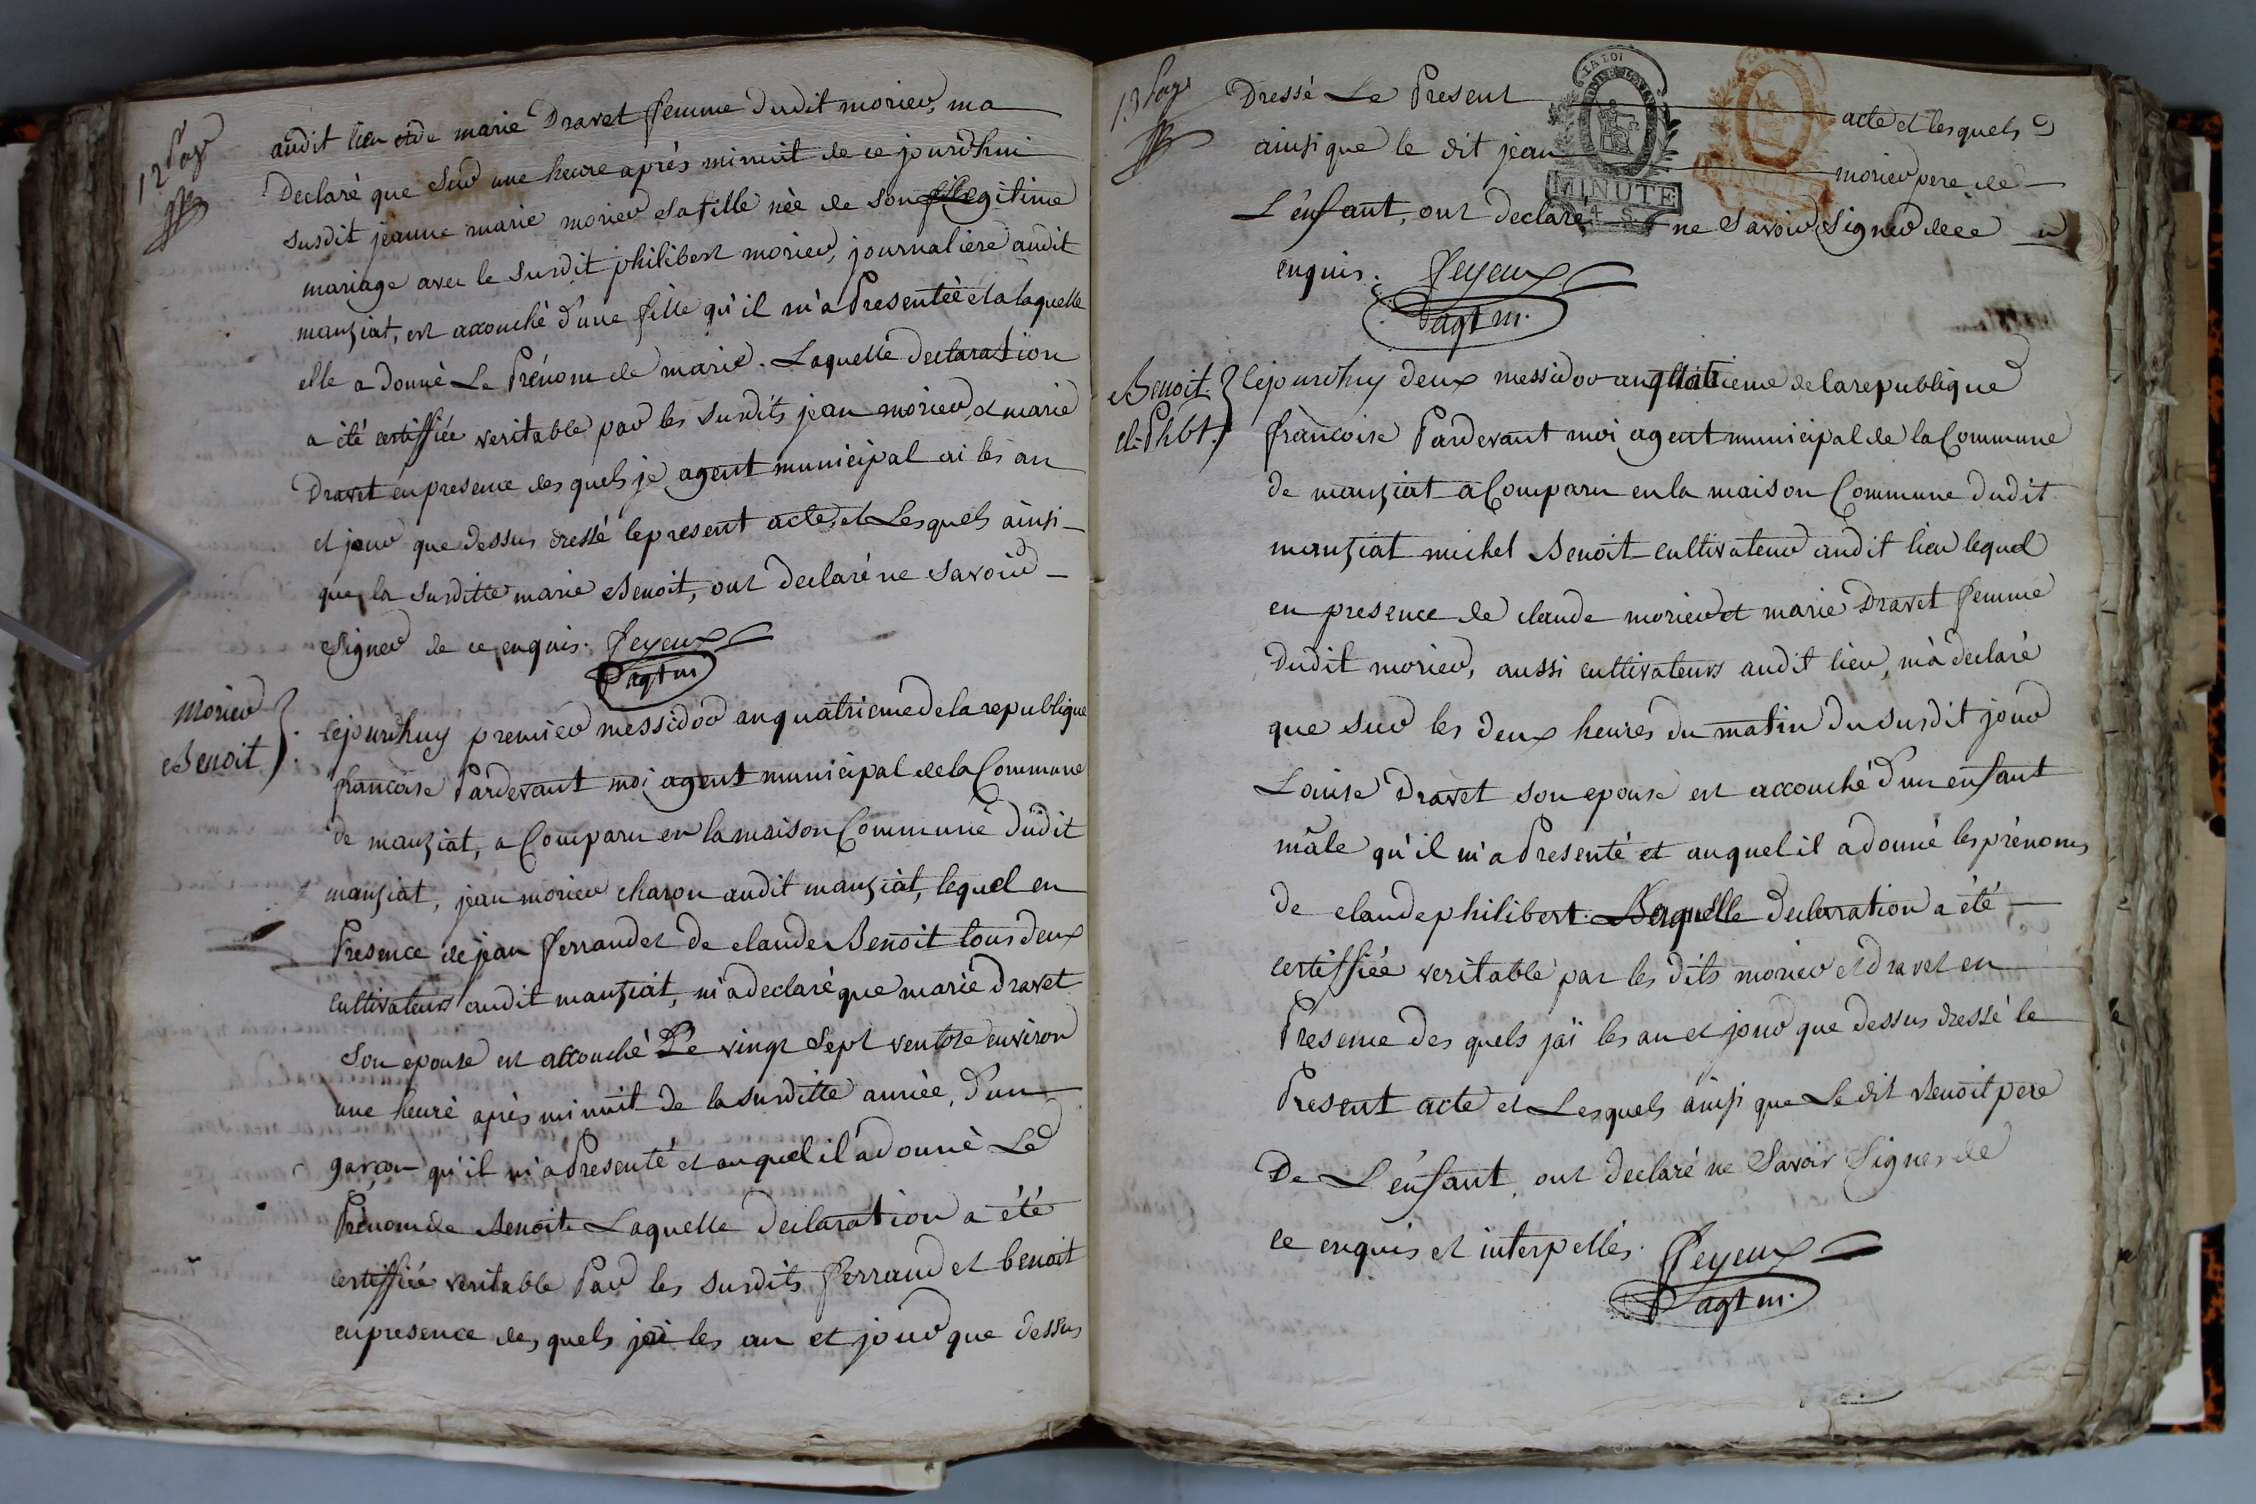 12 Page
audit lieu et de marie Dravet femme dudit morier, ma
Declaré que sur une heure aprés minuit de ce jourdhui
susdit jeanne marie morier sa fille née de son legitime
mariage avec le susdit philibert morier, journaliere audit
manziat, est accouché d'une fille qu'il m'a Presentée et a laquelle
elle a donné Le Prénom de marie. Laquelle declaration
a été certiffiée veritable par les susdits jean morier, et marie
Dravet en presence des quels je agent municipal ai les an
et jour que dessus dressé le present acte, et Lesquels ainsi
que la susditte marie Benoit, ont declaré ne savoir
signer de ce enquis. feyeux
agt m
morier
Benoit
Cejourdhuy premier messidor an quatrieme de la republique
francoise Pardevant moi agent municipal de la Commune
de manziat, a Comparu en la maison Commune dudit
manziat, jean morier charon audit manziat, lequel en
Presence de jean ferrand et de claude Benoit tous deux
cultivateurs audit manziat, m'a declaré que marie dravet
son epouse est accouché Le vingt sept ventose environ
une heure après minuit de la susditte année, d'un
garçon qu'il m'a Presenté et auquel il a donné Le
Prenom de Benoit. Laquelle declaration a été
certiffiée veritable Par les susdits ferrand et benoit
en presence des quels jai les an et jour que dessus
13 Page
Dressé Le Present acte et lesquels
LA LOI
MINUTE
4 S
ainsi que le dit jean morier pere de
L'enfant, ont declaré ne savoir signer de ce
enquis. feyeux
agt m.
Benoit
cl. Phbt.
Cejourdhuy deux messidor an quatrieme de la republique
francoise Pardevant moi agent municipal de la Commune
de manziat a Comparu en la maison Commune dudit
manziat michel Benoit cultivateur audit lieu lequel
en presence de claude morier et marie Dravet femme
Dudit morier, aussi cultivateurs audit lieu, m'a declaré
que sur les deux heures du matin du susdit jour
Louise Dravet son epouse est accouché d'un enfant
mâle qu'il m'a Presenté et auquel il a donné les prénoms
de claude philibert. Laquelle declaration a été
certiffiée veritable par les dits morier et dravet en
Presence des quels j'ai les an et jour que dessus dressé le
Present acte et Lesquels ainsi que Le dit Benoit pere
De L'enfant, ont declaré ne Savoir Signer de
ce enquis et interpellés. feyeux
agt m.